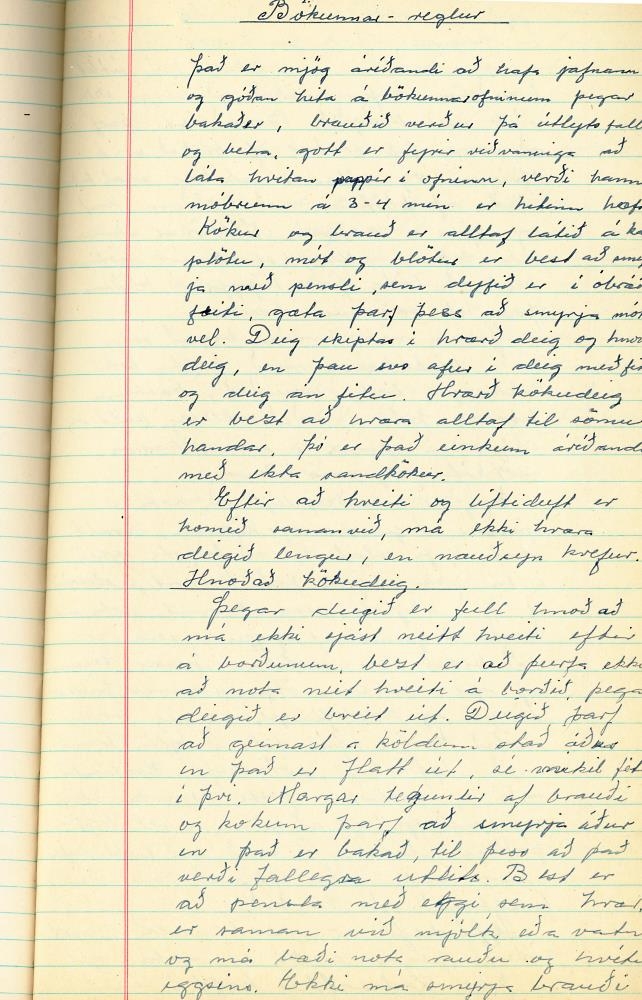 Bökunnar - reglur
það er mjög áríðandi að hafa jafnann
og góðan hita á bökunnarofninum þegar
bakað er, brauðið verður þá útlits fall
og betra, gott er fyrir viðvaninga að
láta hvítan pappír í ofninn, verði hann
móbrunn á 3-4 mín er hitinn hæf
Kökur og brauð er alltaf látið á ka
plötu, mót og plötur er best að smy
ja með pensli, sem dyfið er í óbræ
feiti, gæta þarf þess að smyrja mót
vel. Deig skiptas í hrærð deig og hno
deig, en þau svo aftur í deig með fit
og deig án fitu. Hrærð kökudeig
er bezt að hræra alltaf til sömu
handar, þó er það einkum áríðand
með ekta sandkökur.
Eftir að hveiti og liftiduft er
komið samanvið, má ekki hræra
deigið lengur, en nauðsyn krefur.
Hnoðað kökudeig.
Þegar deigið er full hnoðað
má ekki sjást neitt hveiti eftir
á borðunum, bezt er að þurfa ekki
að nota neit hveiti á borðið, þega
deigið er breit út. Deigið þarf
að geimast a köldum stað áður
en það er flatt út, sé mikil fit
í því. Margar tegundir af brauði
og kokum þarf að smyrja áður
en það er bakað, til þess að það
verði fallegra utlits. Best er
að pensla með eggi sem hrær
er saman við mjólk eða vatn
og má bæði nota rauðu og hvítu
eggsins. Ekki má smyrja brauði